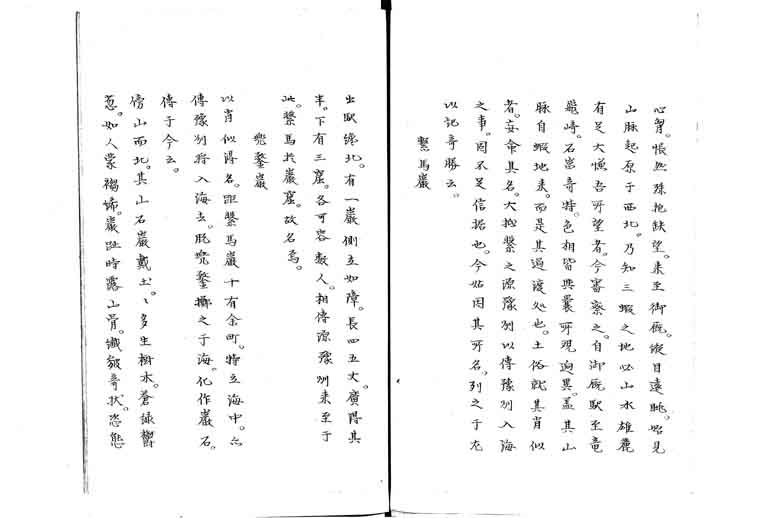 心胷。悵然殊抱缺望。来至御廐。縦目遠眺。略見
山脉起原于西北。乃知三蝦之地必山水雄麗
有足大愜吾所望者。今審察之。自御廐駅至竜
飛崎。石岩奇特。色相皆與曩所現逈異。盖其山
脉自蝦地来。而是其過渡処也。土俗就其肖似
者。妄命其名。大抵繫之源豫州以傳豫州入海
之事。固不足信据也。今姑因其所名。列之于左
以記奇勝云。
繫馬巖
出駅纔北。有一巖側立如障。長四五丈。廣得其
半。下有三窟。各可容数人。相傳源豫州来至于
此。繫馬於巖窟。故名焉。
兜鍪巖
以肖似得名。距繫馬巖十有余町。特立海中。亦
傳豫州将入海去。脱兜鍪擲之于海。化作巖石。
傳于今云。
傍山而北。其山石巖戴土。土多生樹木。蒼緑鬱
葱。如人蒙褐。巖趾時露山骨。巉巌奇状。恣態